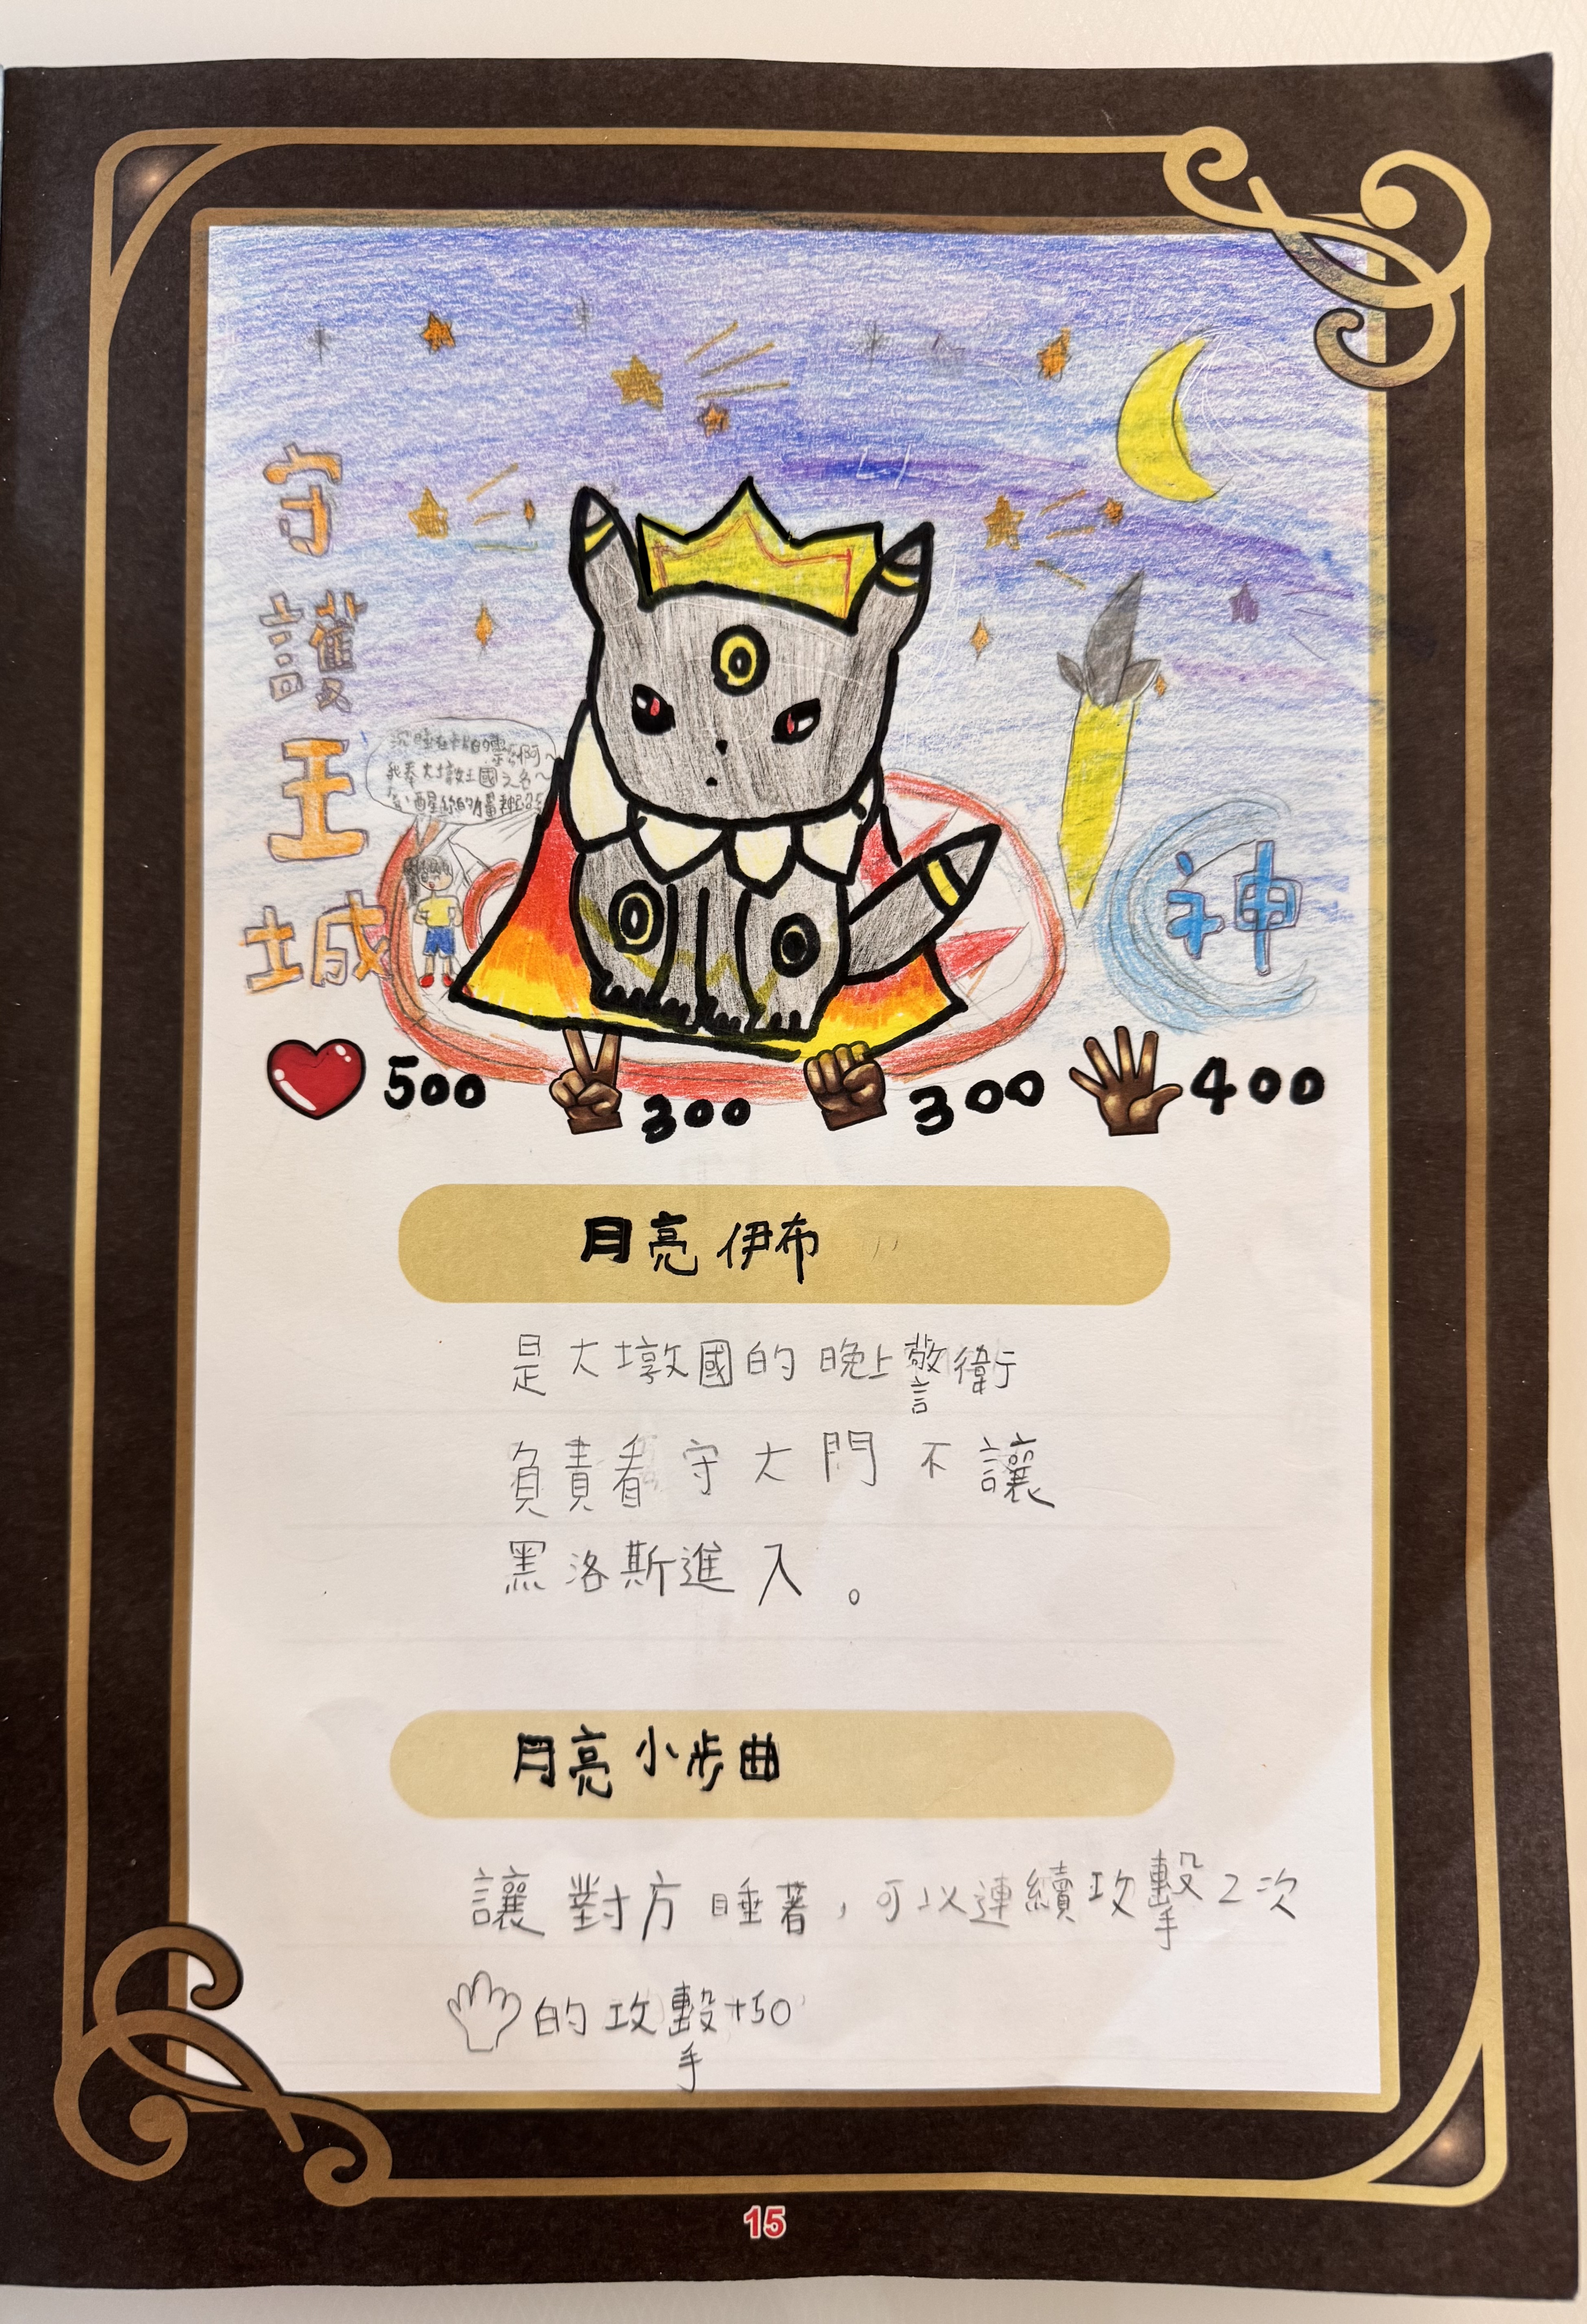 守護王城
沉睡在卡片的靈魂啊~
我奉大墩王國之名~
神
500 300 300 400
月亮伊布
是大墩國的晚上警衛
負責看守大門不讓
黑洛斯進入。
月亮小步曲
讓對方睡著，可以連續攻擊2次
的攻擊+50
15